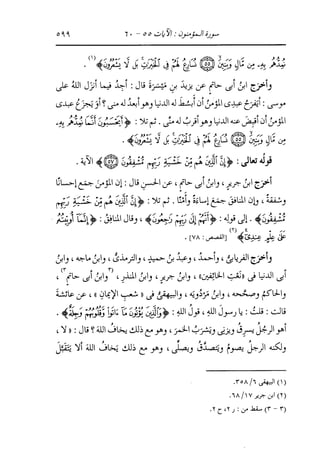 سورة المؤمنون : الآيات ٥٥ - ٦٠ ٥٩٩
نُمِدُّهُم بِهِ. مِن مَّالٍ وَبَنِينَ ﴿٥٥﴾ نُسَارِعُ لَهُمْ فِي الْخَيْرَاتِ بَل لَّا يَشْعُرُونَ﴾(١).
وأخرج ابنُ أبي حاتمٍ عن يزيدَ بنِ مَيْسَرَةَ قال : أجِدُ فيما أنزَل اللهُ على
موسى : أيَفرَحُ عبدى المؤمنُ أن أبسُطَ له الدنيا وهو أبعدُ له منى ؟ أوَ يَجْزَعُ عبدى
المؤمنُ أن أقبِضَ عنه الدنيا وهو أقربُ له منِّى . ثم تلا : ﴿أَيَحْسَبُونَ أَنَّمَا نُمِدُّهُم بِهِ.
مِن مَّالٍ وَبَنِينَ ﴿٥٥﴾ نُسَارِعُ لَهُمْ فِي الْخَيْرَاتِ بَل لَّا يَشْعُرُونَ﴾ .
قولُه تعالى : ﴿إِنَّ الَّذِينَ هُم مِّنْ خَشْيَةِ رَبِّهِم مُّشْفِقُونَ ﴿٥٧﴾﴾ الآية .
أخرَج ابنُ جريرٍ ، وابنُ أبى حاتمٍ ، عن الحسنِ قال : إن المؤمنَ جمَع إحسانًا
وشفقةً ، وإن المنافقَ جمَع إساءةً وأمْنًا . ثم تلا : ﴿إِنَّ الَّذِينَ هُم مِّنْ خَشْيَةِ رَبِّهِم
مُّشْفِقُونَ﴾ . إلى قولِه : ﴿أَنَّهُمْ إِلَى رَبِّهِمْ رَاجِعُونَ﴾ ، وقال المنافقُ : ﴿إِنَّمَا أُوتِيتُهُ
عَلَى عِلْمٍ عِندِي﴾(٢) [القصص : ٧٨] .
وأخرج الفريابيُّ ، وأحمدُ ، وعبدُ بنُ حميدٍ ، والترمذىُّ ، وابنُ ماجه ، وابنُ
أبى الدنيا فى «نَعْتِ الخائفِين» ، وابنُ جريرٍ ، وابنُ المنذرِ ، (٣وابنُ أبى حاتمٍ٣) ،
والحاكمُ وصححه ، وابنُ مَرْدُويَه ، والبيهقىُّ فى «شعبِ الإيمانِ» ، عن عائشةَ
قالت : قلتُ : يا رسولَ اللهِ ، قولُ اللهِ : ﴿وَالَّذِينَ يُؤْتُونَ مَا آتَوا وَّقُلُوبُهُمْ وَجِلَةٌ﴾ .
أهو الرجلُ يسرِقُ ويزنى ويشرَبُ الخمرَ ، وهو مع ذلك يخافُ اللهَ ؟ قال : «لا ،
ولكنه الرجلُ يصومُ ويتصدَّقُ ويصلِّى ، وهو مع ذلك يَخافُ اللهَ ألا يَتَقَبَّلَ
(١) البيهقى ٦/ ٣٥٨.
(٢) ابن جرير ١٧/ ٦٨.
(٣ - ٣) سقط من : ر٢، ح٢.